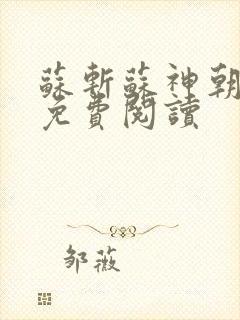 蘇斬蘇神朝
免費閱讀
邹薇